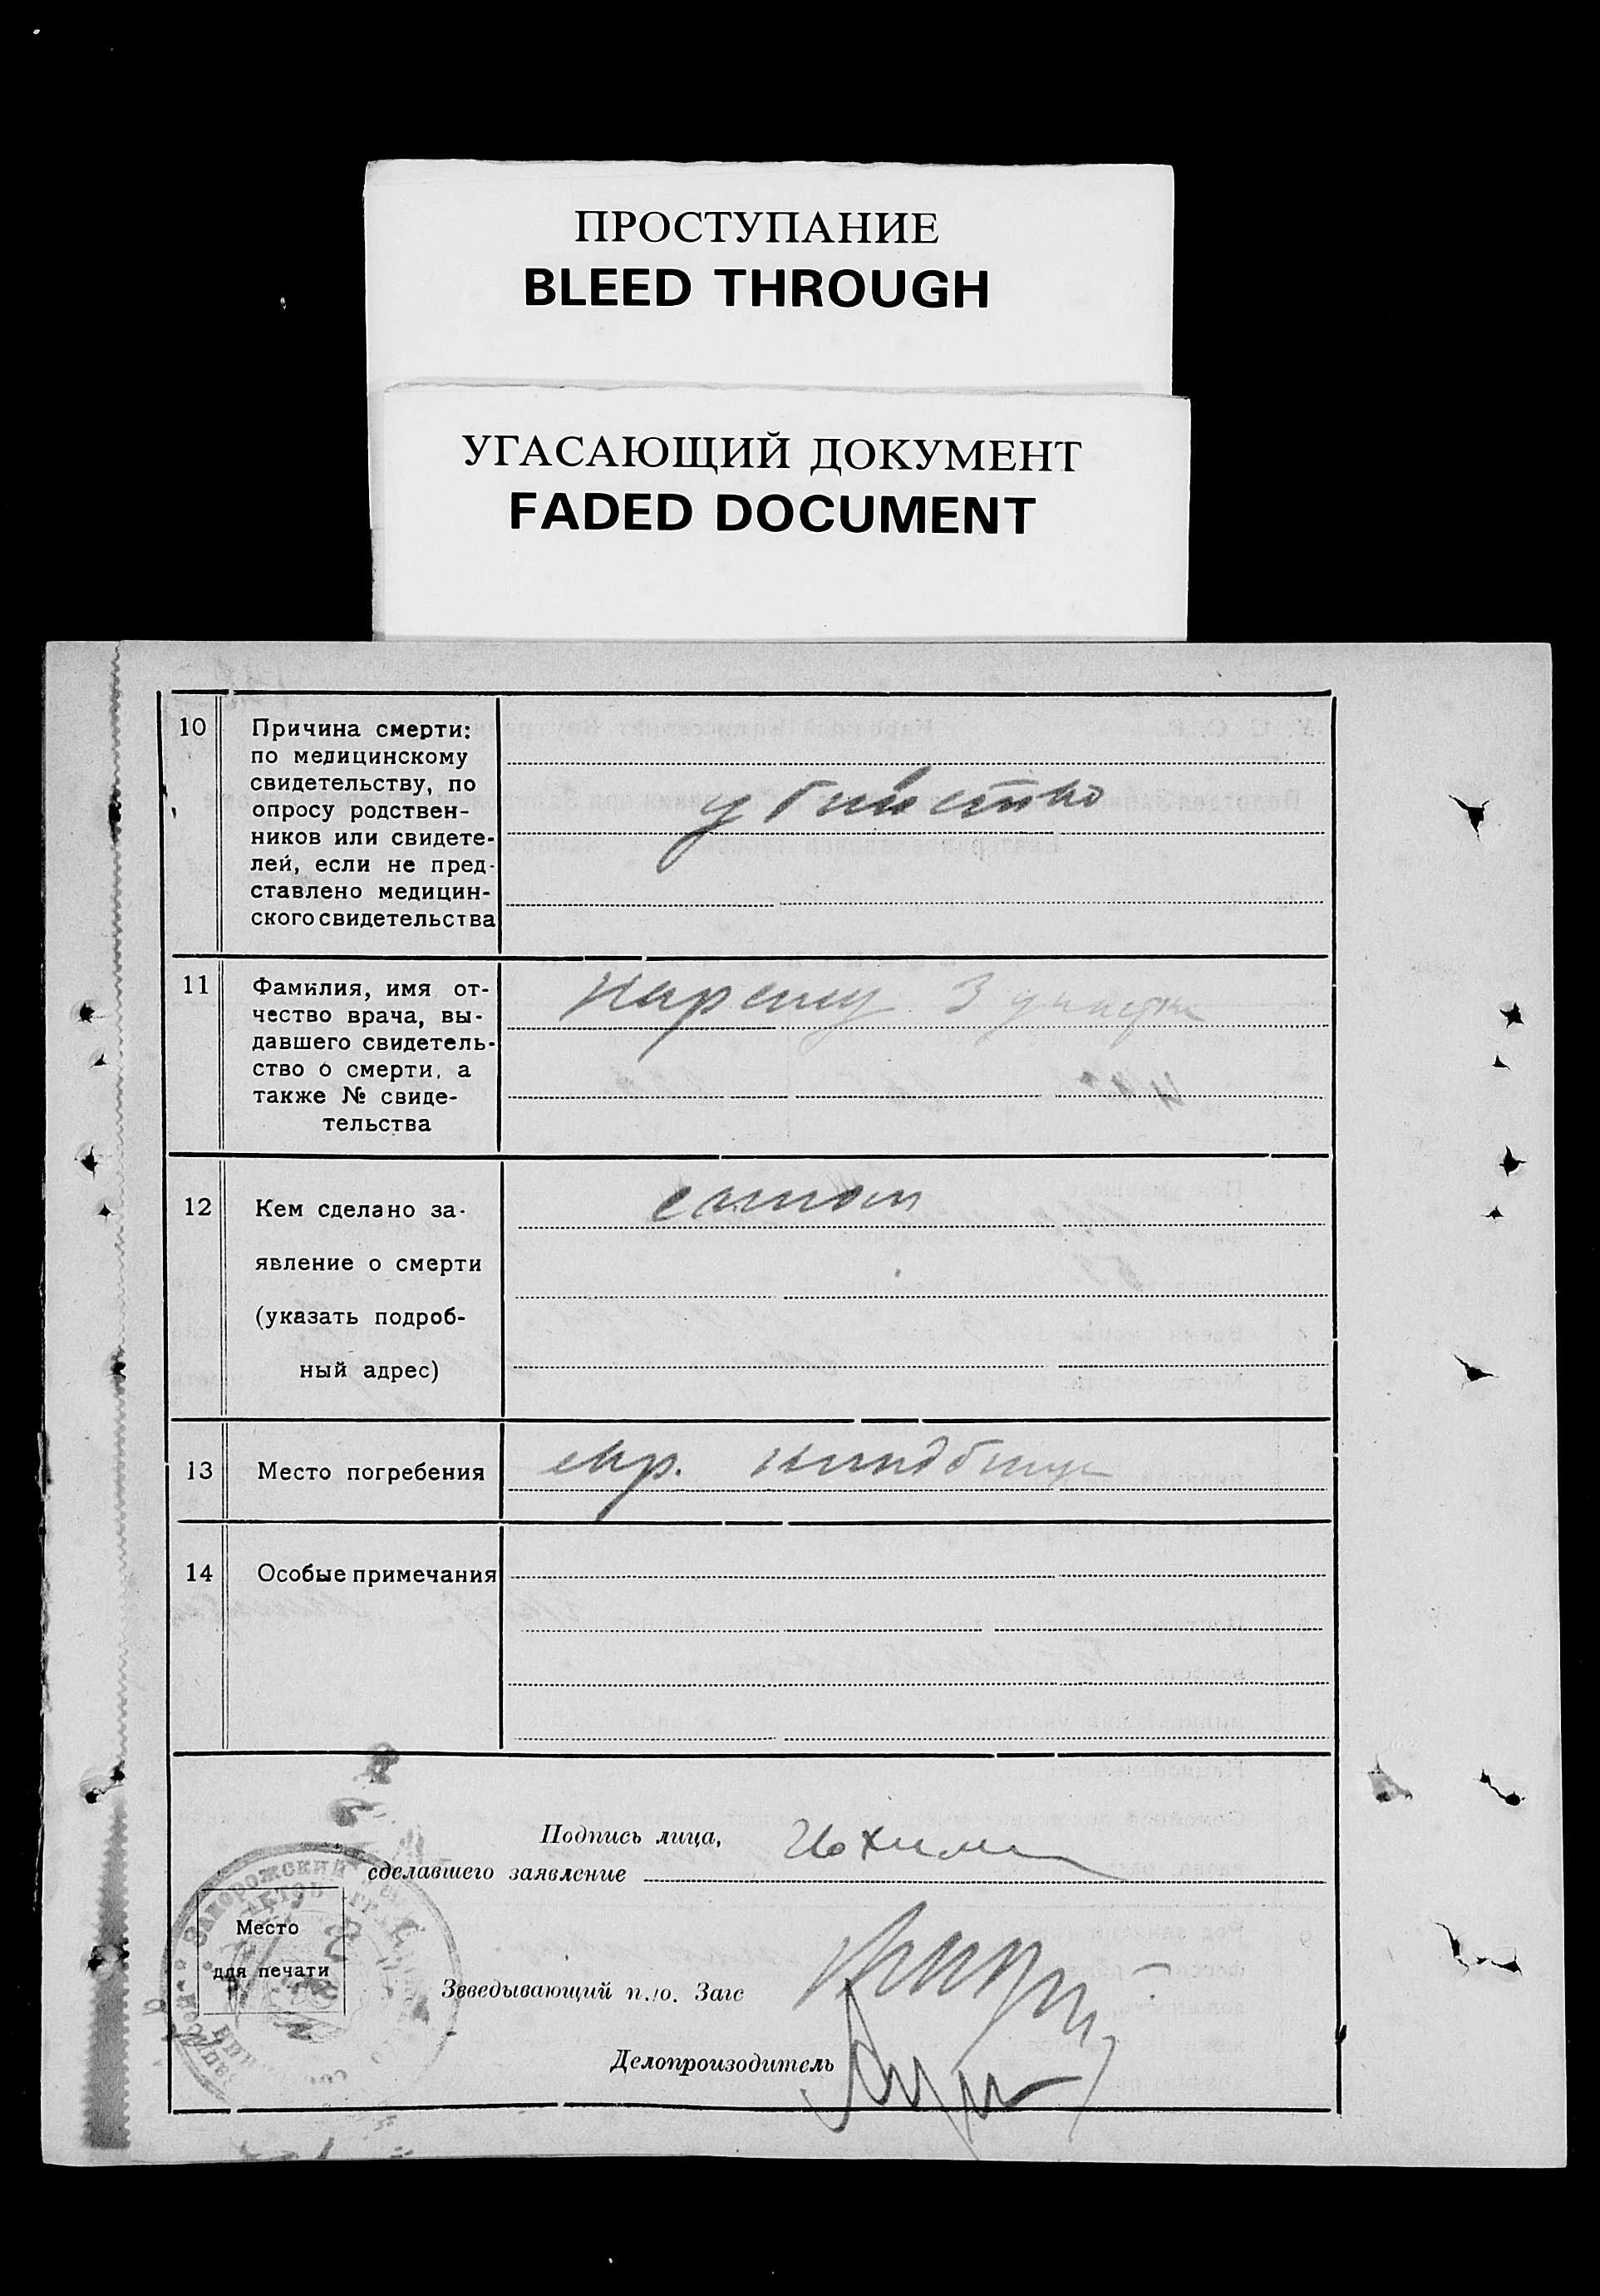 ПРОСТУПАНИЕ
BLEED THROUGH
УГАСАЮЩИЙ ДОКУМЕНТ
FADED DOCUMENT
10
Причина смерти:
по медицинскому
свидетельству, по
опросу родствен-
ников или свидете-
лей, если не пред-
ставлено медицин-
ского свидетельства
убийство
11
Фамилия, имя от-
чество врача, вы-
давшего свидетель-
ство о смерти, а
также № свиде-
тельства
3
12
Кем сделано за-
явление о смерти
(указать подроб-
ный адрес)
13
Место погребения
евр. кладбище
14
Особые примечания
Подпись лица,
сделавшего заявление
Место
для печати
Зеведывающий п./о. Загс
Делопроизодитель